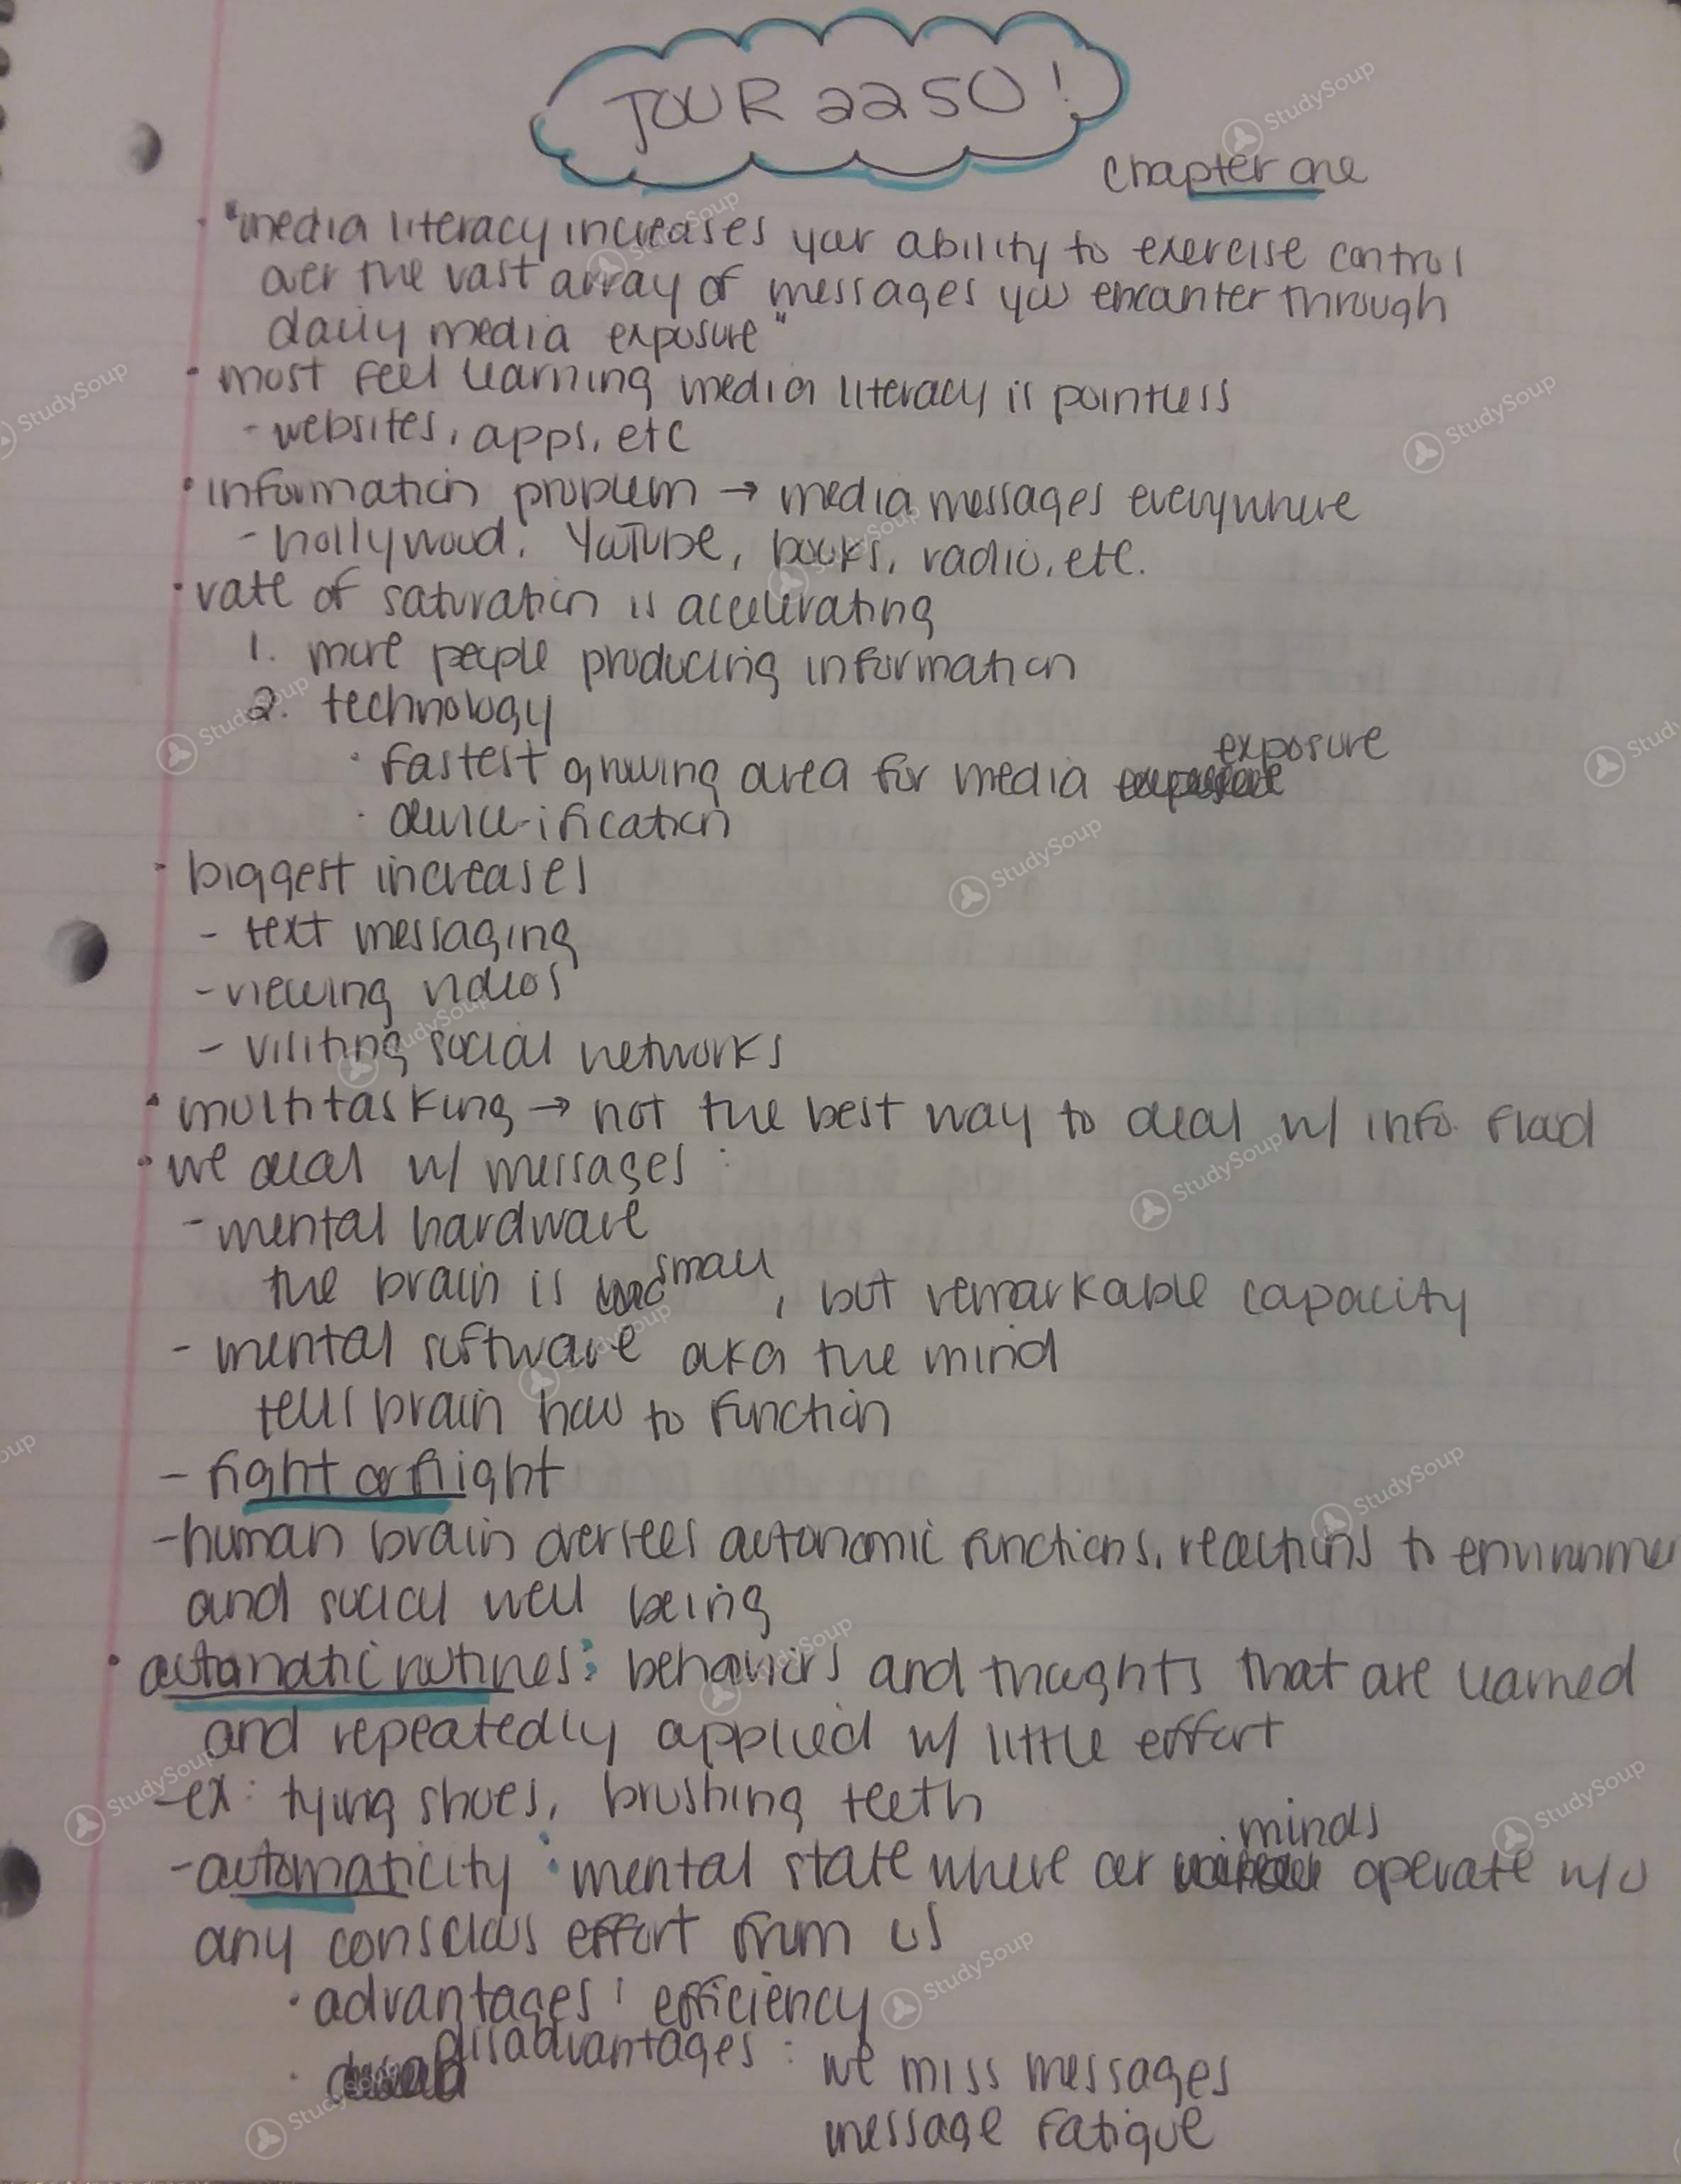 JOUR 2250!
chapter one
• "media literacy increases your ability to exercise control
over the vast array of messages you encounter through
daily media exposure"
• most feel learning media literacy is pointless
- websites, apps, etc
• information problem → media messages everywhere
- hollywood, YouTube, books, radio, etc.
• rate of saturation is accelerating
1. more people producing information
2. technology
• fastest growing area for media exposure
• device-ification
• biggest increases
- text messaging
- viewing videos
- visiting social networks
• multitasking → not the best way to deal w/ info flood
• we deal w/ messages:
- mental hardware
the brain is small, but remarkable capacity
- mental software aka the mind
tells brain how to function
- fight or flight
- human brain oversees autonomic functions, reactions to environme
and social well being
• automatic routines: behaviors and thoughts that are learned
and repeatedly applied w/ little effort
- ex: tying shoes, brushing teeth
- automaticity: mental state where our minds operate w/o
any conscious effort from us
• advantages: efficiency
• disadvantages: we miss messages
message fatigue
StudySoup